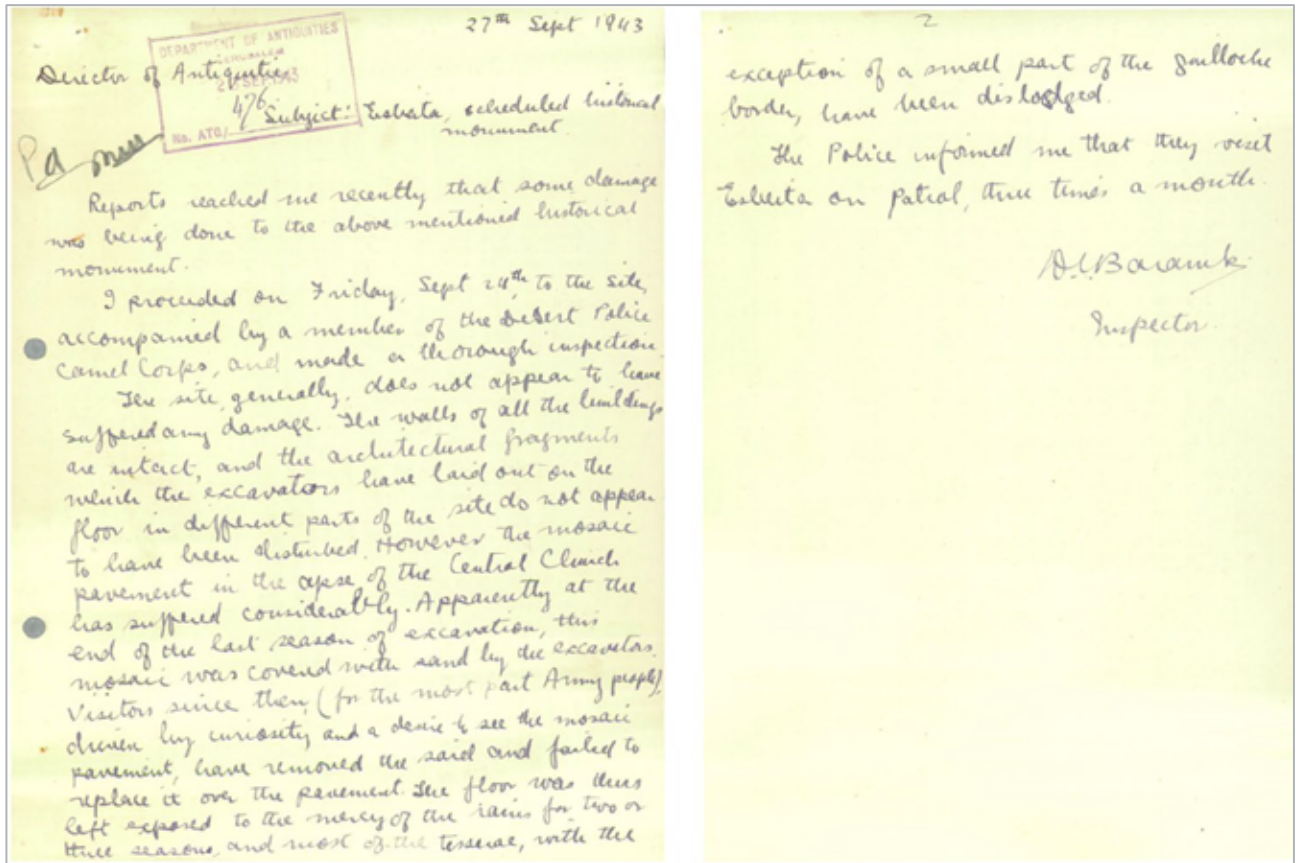 27th Sept 1943
DEPARTMENT OF ANTIQUITIES
JERUSALEM
SEP 1943
No. ATQ/ 476
Director of Antiquities
Subject: Esbeita, scheduled historical
monument.
Reports reached me recently that some damage
was being done to the above mentioned historical
monument.
I proceeded on Friday, Sept 24th, to the site,
accompanied by a member of the Desert Police
Camel Corps, and made a thorough inspection.
The site, generally, does not appear to have
suffered any damage. The walls of all the buildings
are intact, and the architectural fragments
which the excavators have laid out on the
floor in different parts of the site do not appear
to have been disturbed. However the mosaic
pavement in the apse of the Central Church
has suffered considerably. Apparently at the
end of the last season of excavation, this
mosaic was covered with sand by the excavators.
Visitors since then, (for the most part Army people),
driven by curiosity and a desire to see the mosaic
pavement, have removed the sand and failed to
replace it over the pavement. The floor was thus
left exposed to the mercy of the rains for two or
three seasons, and most of the tesserae, with the
2
exception of a small part of the guilloche
border, have been dislodged.
The Police informed me that they visit
Esbeita on Patrol, three times a month.
D.C. Baramki
Inspector.